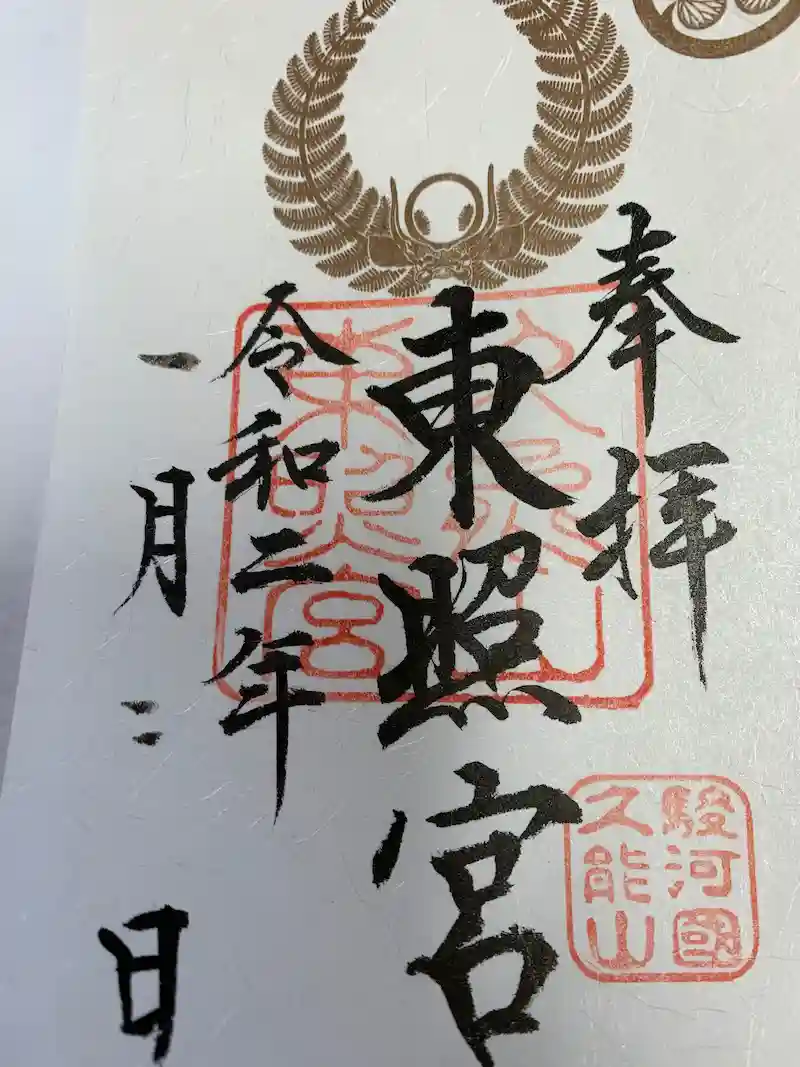 奉拝
東照宮
令和二年
一月二日
久能山
東照宮
駿河國
久能山